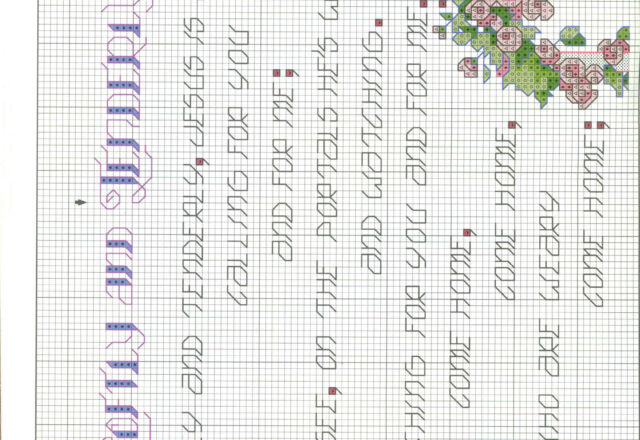 oftly and Tenderly
Y AND TENDERLY, JESUS IS
CALLING FOR YOU
AND FOR ME;
SEE, ON THE PORTALS HE'S W
AND WATCHING.
CHING FOR YOU AND FOR ME.
COME HOME,
COME HOME,
HO ARE WEARY
COME HOME;